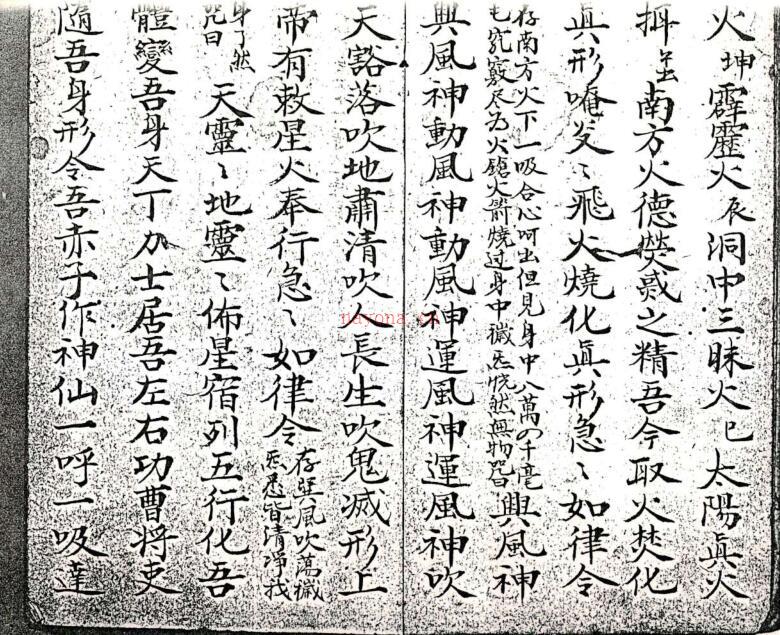 火坤霹靂火辰洞中三昧火巳太陽真火
揖至南方火德熒惑之精吾今取火焚化
真形唵㸚〻飛火燒化真形急〻如律令
存南方火下一吸合心呵出但見身中八萬四千毫
毛竅竅尽为火鎗火箭燒过身中穢炁恍然無物咒曰 興風神
興風神動風神動風神運風神運風神吹
天豁落吹地肅清吹人長生吹鬼滅形上
帝有敕星火奉行急〻如律令 存巽風吹蕩穢
炁悉皆清净我
身了然
咒曰 天靈〻地靈〻佈星宿列五行化吾
體變吾身天丁力士居吾左右功曹將吏
隨吾身形令吾赤子作神仙一呼一吸達
nayona.cn